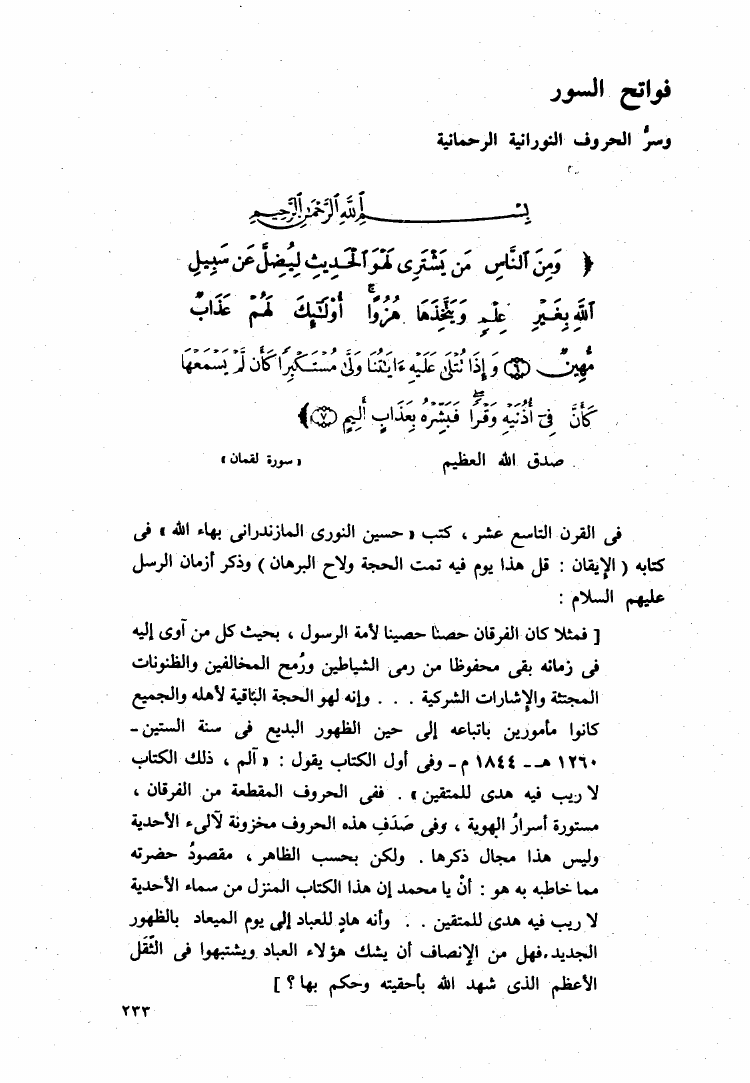 فواتح السور
وسرُّ الحروف النورانية الرحمانية
بِسْمِ اللَّهِ الرَّحْمَٰنِ الرَّحِيمِ
﴿ وَمِنَ ٱلنَّاسِ مَن يَشْتَرِى لَهْوَ ٱلْحَدِيثِ لِيُضِلَّ عَن سَبِيلِ
ٱللَّهِ بِغَيْرِ عِلْمٍ وَيَتَّخِذَهَا هُزُوًا ۚ أُوْلَٰٓئِكَ لَهُمْ عَذَابٌ
مُّهِينٌ ٦ وَإِذَا تُتْلَىٰ عَلَيْهِ ءَايَٰتُنَا وَلَّىٰ مُسْتَكْبِرًا كَأَن لَّمْ يَسْمَعْهَا
كَأَنَّ فِىٓ أُذُنَيْهِ وَقْرًا ۖ فَبَشِّرْهُ بِعَذَابٍ أَلِيمٍ ٧ ﴾
صدق الله العظيم « سورة لقمان »
فى القرن التاسع عشر ، كتب « حسين النورى المازندرانى بهاء الله » فى
كتابه ( الإيقان : قل هذا يوم فيه تمت الحجة ولاح البرهان ) وذكر أزمان الرسل
عليهم السلام :
[ فمثلا كان الفرقان حصنا حصينا لأمة الرسول ، بحيث كل من آوى إليه
فى زمانه بقى محفوظا من رمى الشياطين ورُمح المخالفين والظنونات
المجتثة والإشارات الشركية . . . وإنه لهو الحجة الباقية لأهله والجميع
كانوا مأمورين باتباعه إلى حين الظهور البديع فى سنة الستين -
١٢٦٠ هـ - ١٨٤٤ م - وفى أول الكتاب يقول : « آلم ، ذلك الكتاب
لا ريب فيه هدى للمتقين » . ففى الحروف المقطعة من الفرقان ،
مستورة أسرارُ الهوية ، وفى صَدَفِ هذه الحروف مخزونة لآلىء الأحدية
وليس هذا مجال ذكرها . ولكن بحسب الظاهر ، مقصودُ حضرته
مما خاطبه به هو : أنْ يا محمد إن هذا الكتاب المنزل من سماء الأحدية
لا ريب فيه هدى للمتقين . . وأنه هادٍ للعباد إلى يوم الميعاد بالظهور
الجديد . فهل من الإنصاف أن يشك هؤلاء العباد ويشتبهوا فى الثَّقَل
الأعظم الذى شهد الله بأحقيته وحكم بها ؟ ]
٢٣٣